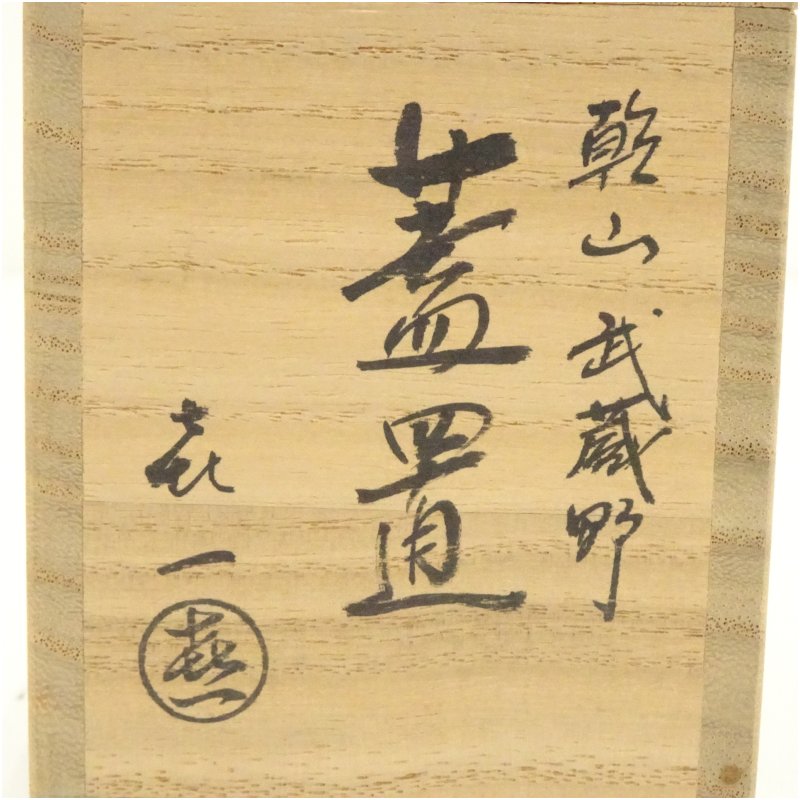 乾山 武蔵野
蓋置
㐂一
㐂一